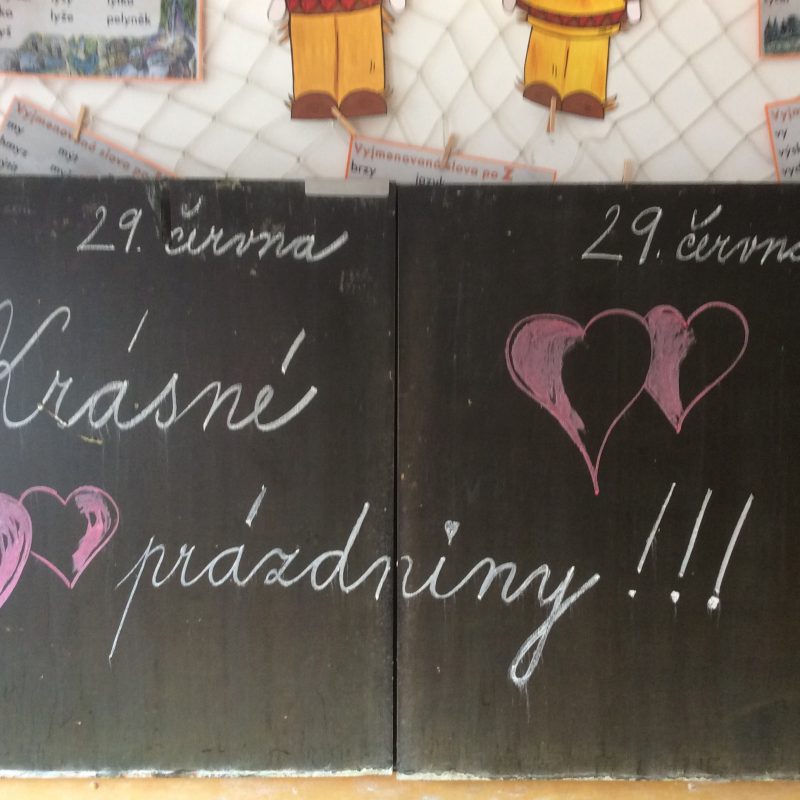 lyže pelyněk
Vyjmenovaná slova po
my
hmyz
myš
Vyjmenovaná slova po Z
brzy jazyk
vy
29. června
29. června
Krásné
prázdniny !!!